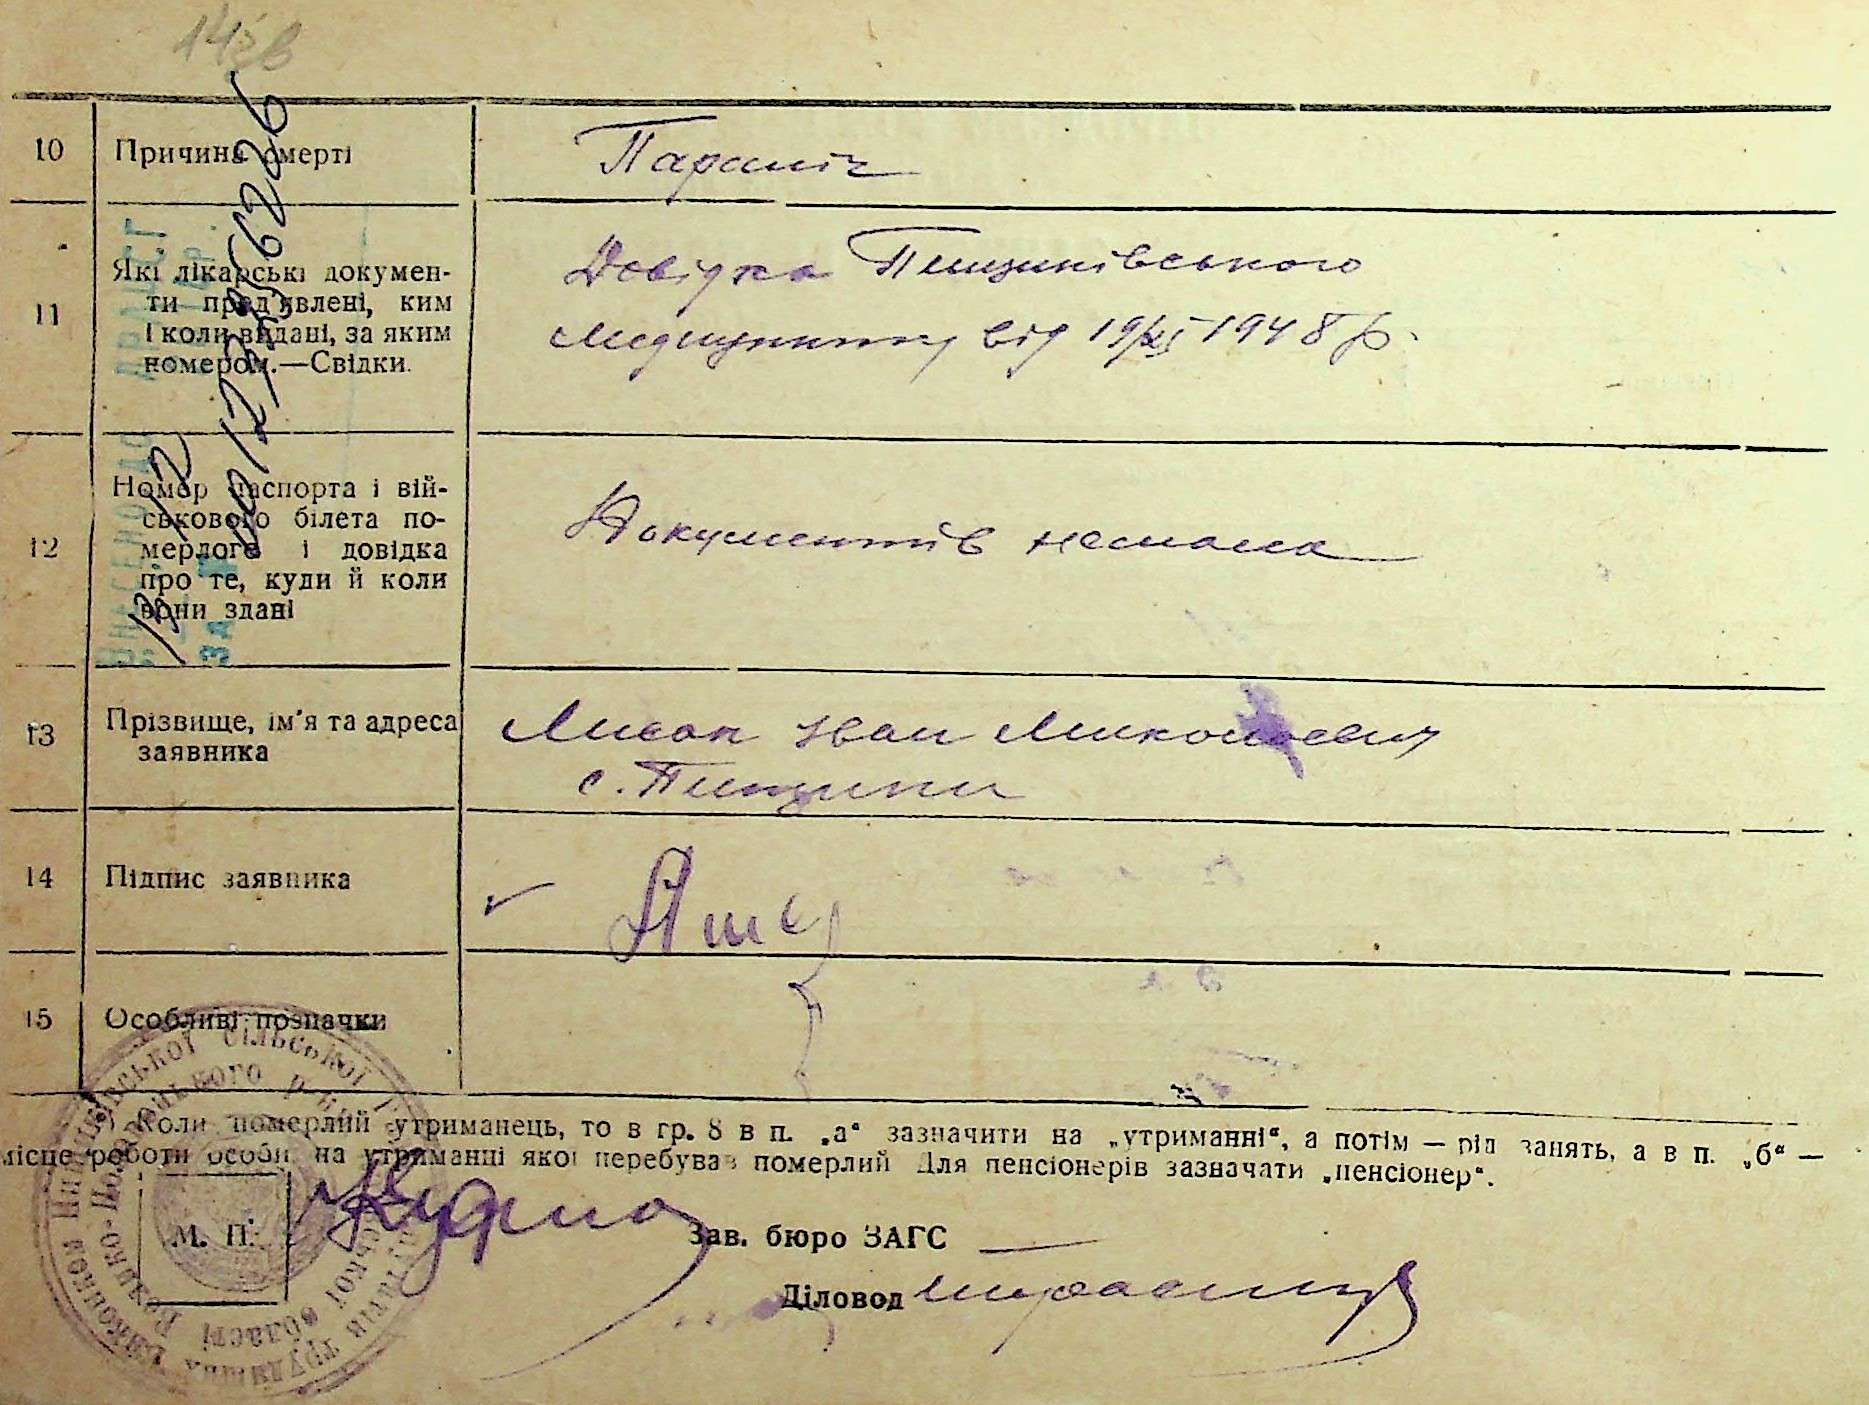 10 Причина смерті
Параліч
11 Які лікарські докумен-
ти пред'явлені, ким
і коли видані, за яким
номером.—Свідки.
Довідка Пищиківського
Медпункту від 19/XI 1948 р.
12 Номер паспорта і вій-
ськового білета по-
мерлого і довідка
про те, куди й коли
вони здані
Документів немала
13 Прізвище, ім'я та адреса
заявника
Иван Миколаевич
с. Пищики
14 Підпис заявника
15 Особливі позначки
Коли померлий утриманець, то в гр. 8 в п. „а“ зазначити на „утриманні“, а потім — рід занять, а в п. „б“ —
місце роботи особи, на утриманні якої перебував померлий Для пенсіонерів зазначати „пенсіонер“.
М. П.
Зав. бюро ЗАГС
Діловод